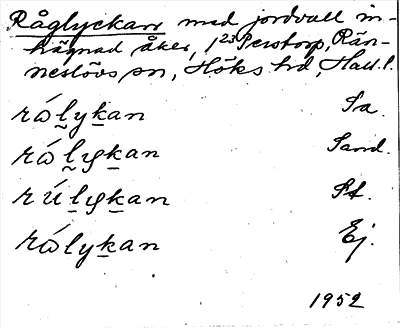 Råglyckan med jordvall in-
hägnad åker, 1²³ Perstorp, Rän-
neslövs sn, Höks hd, Hall. l.
rɷ́l̰yḵan Sa.
rɷ́l̰yḵan Sand.
rúl̰yḵan St.
rɷ́lyḵan Ej.
1952